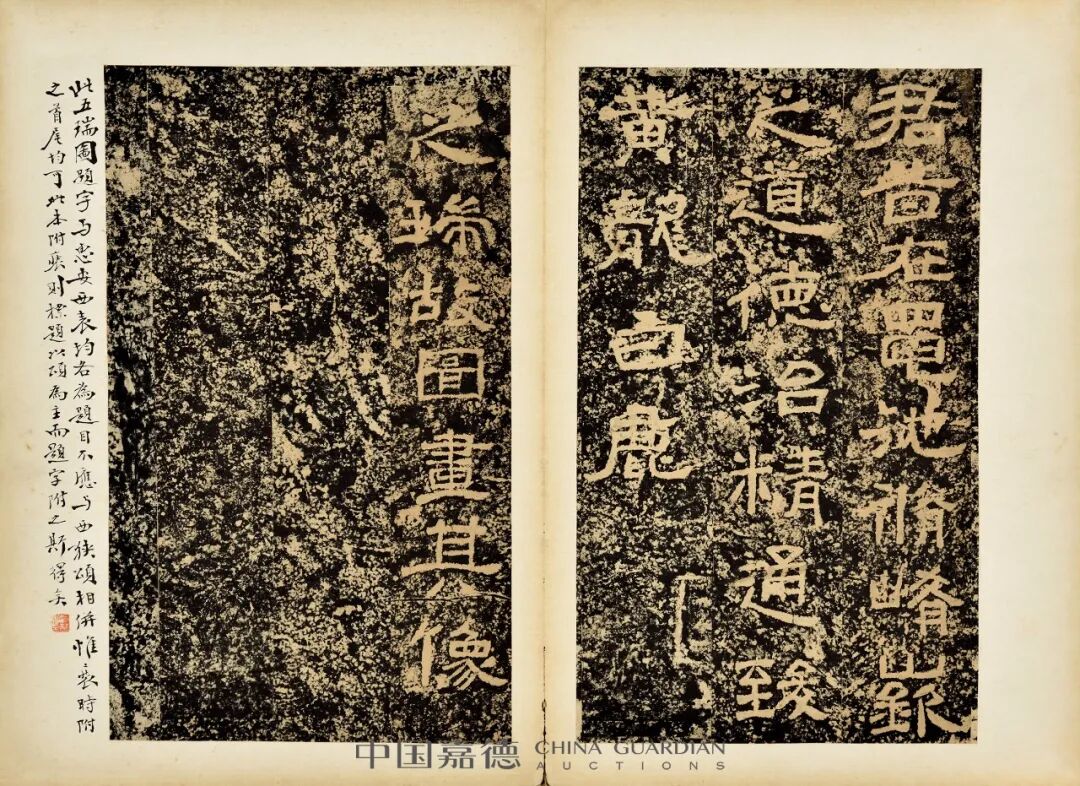 君昔在黽池脩崤嶔
之道德治精通致
黃龍白鹿
之瑞故圖畫其像
此五瑞圖題字与惠安西表均各為題目不應与西狹頌相併惟裝時附
之首尾均可此本附裝則標題以頌為主而題字附之斯得矣
中国嘉德 CHINA GUARDIAN
AUCTIONS